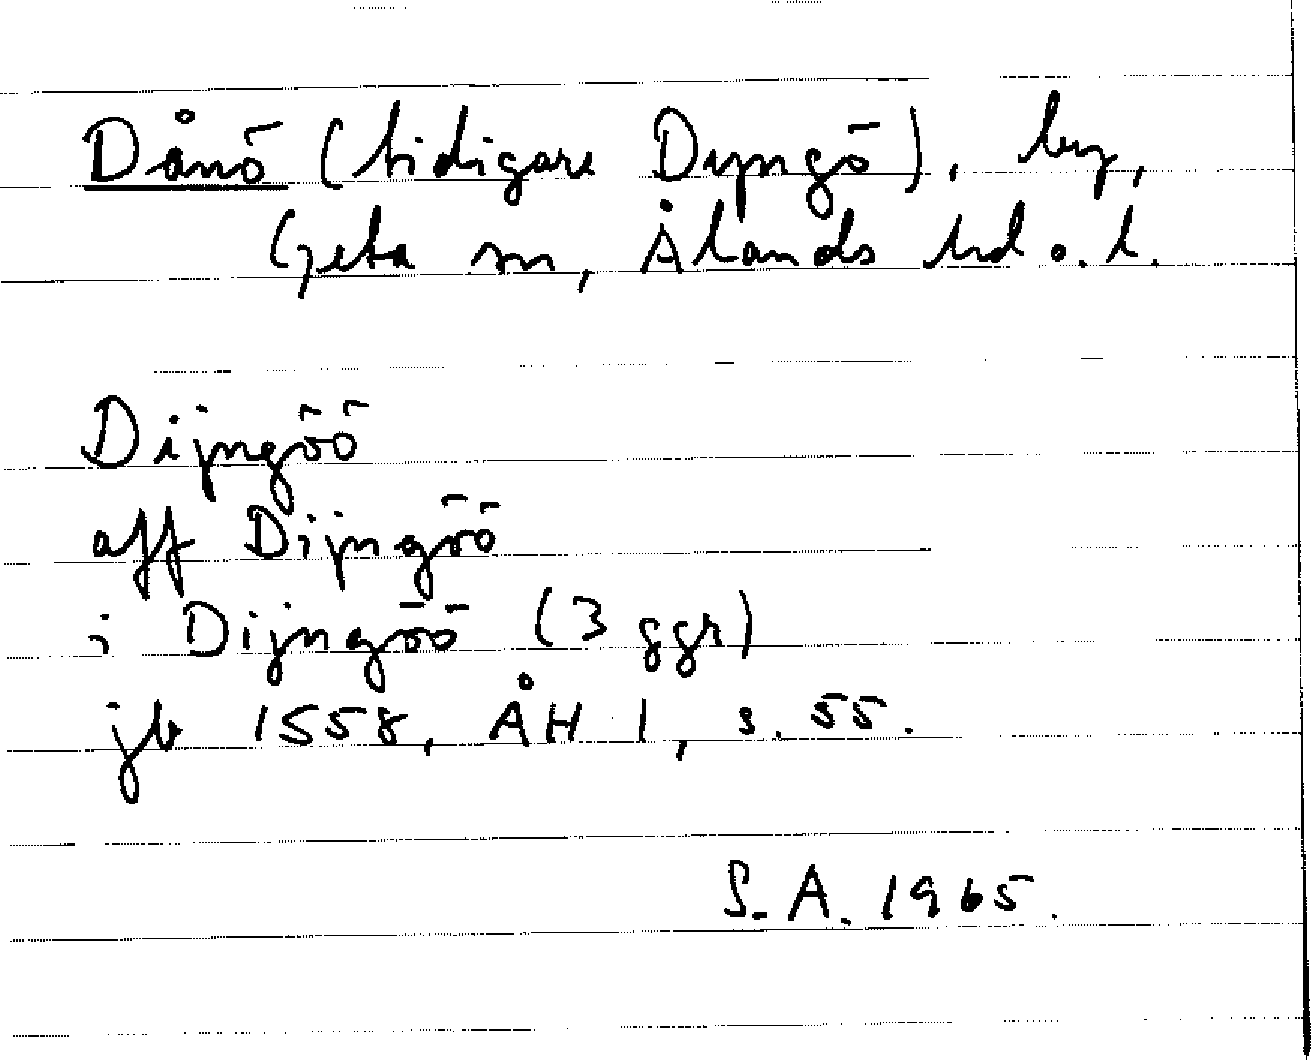 Dånö (tidigare Dyngö), by,
Geta sn, Ålands hd o. l.
Dijngöö
aff Dijngöö
i Dijngöö (3 ggr)
jb 1558, ÅH 1, s. 55.
S.A. 1965.